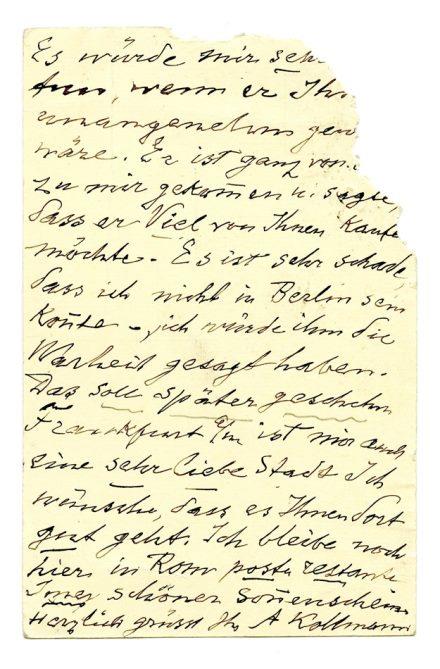 Es würde mir seh
tun, wenn er Ihn
unangenehm gew
wäre. Er ist ganz von
zu mir gekom̄en u. sagte,
dass er Viel von Ihnen Kaufe
möchte - Es ist sehr schade,
dass ich nicht in Berlin sein
kon̄te - ich würde ihm die
Warheit gesagt haben.
Das soll später geschehn
Frankfurt a/m ist mir auch
eine sehr liebe Stadt Ich
wünsche, dass es Ihnen dort
gut geht. Ich bleibe noch
hier in Rom poste restante
Im̄er schöner Son̄enschein
Herzlich grüsst Ihr A Kollmann